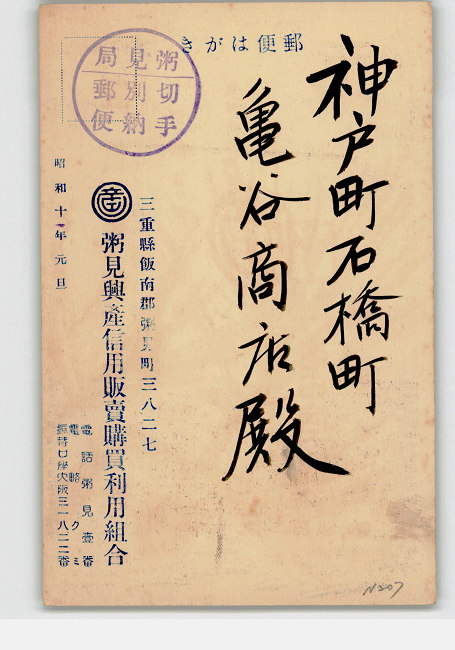 郵便はがき
粥見局
切別郵
手納便
神戸町石橋町
亀谷商店殿
三重縣飯南郡粥見町三八二七
産
粥見興産信用販賣購買利用組合
電話粥見壹番
電略クミ
振替口座大阪三一八三二番
昭和十一年元旦
N207